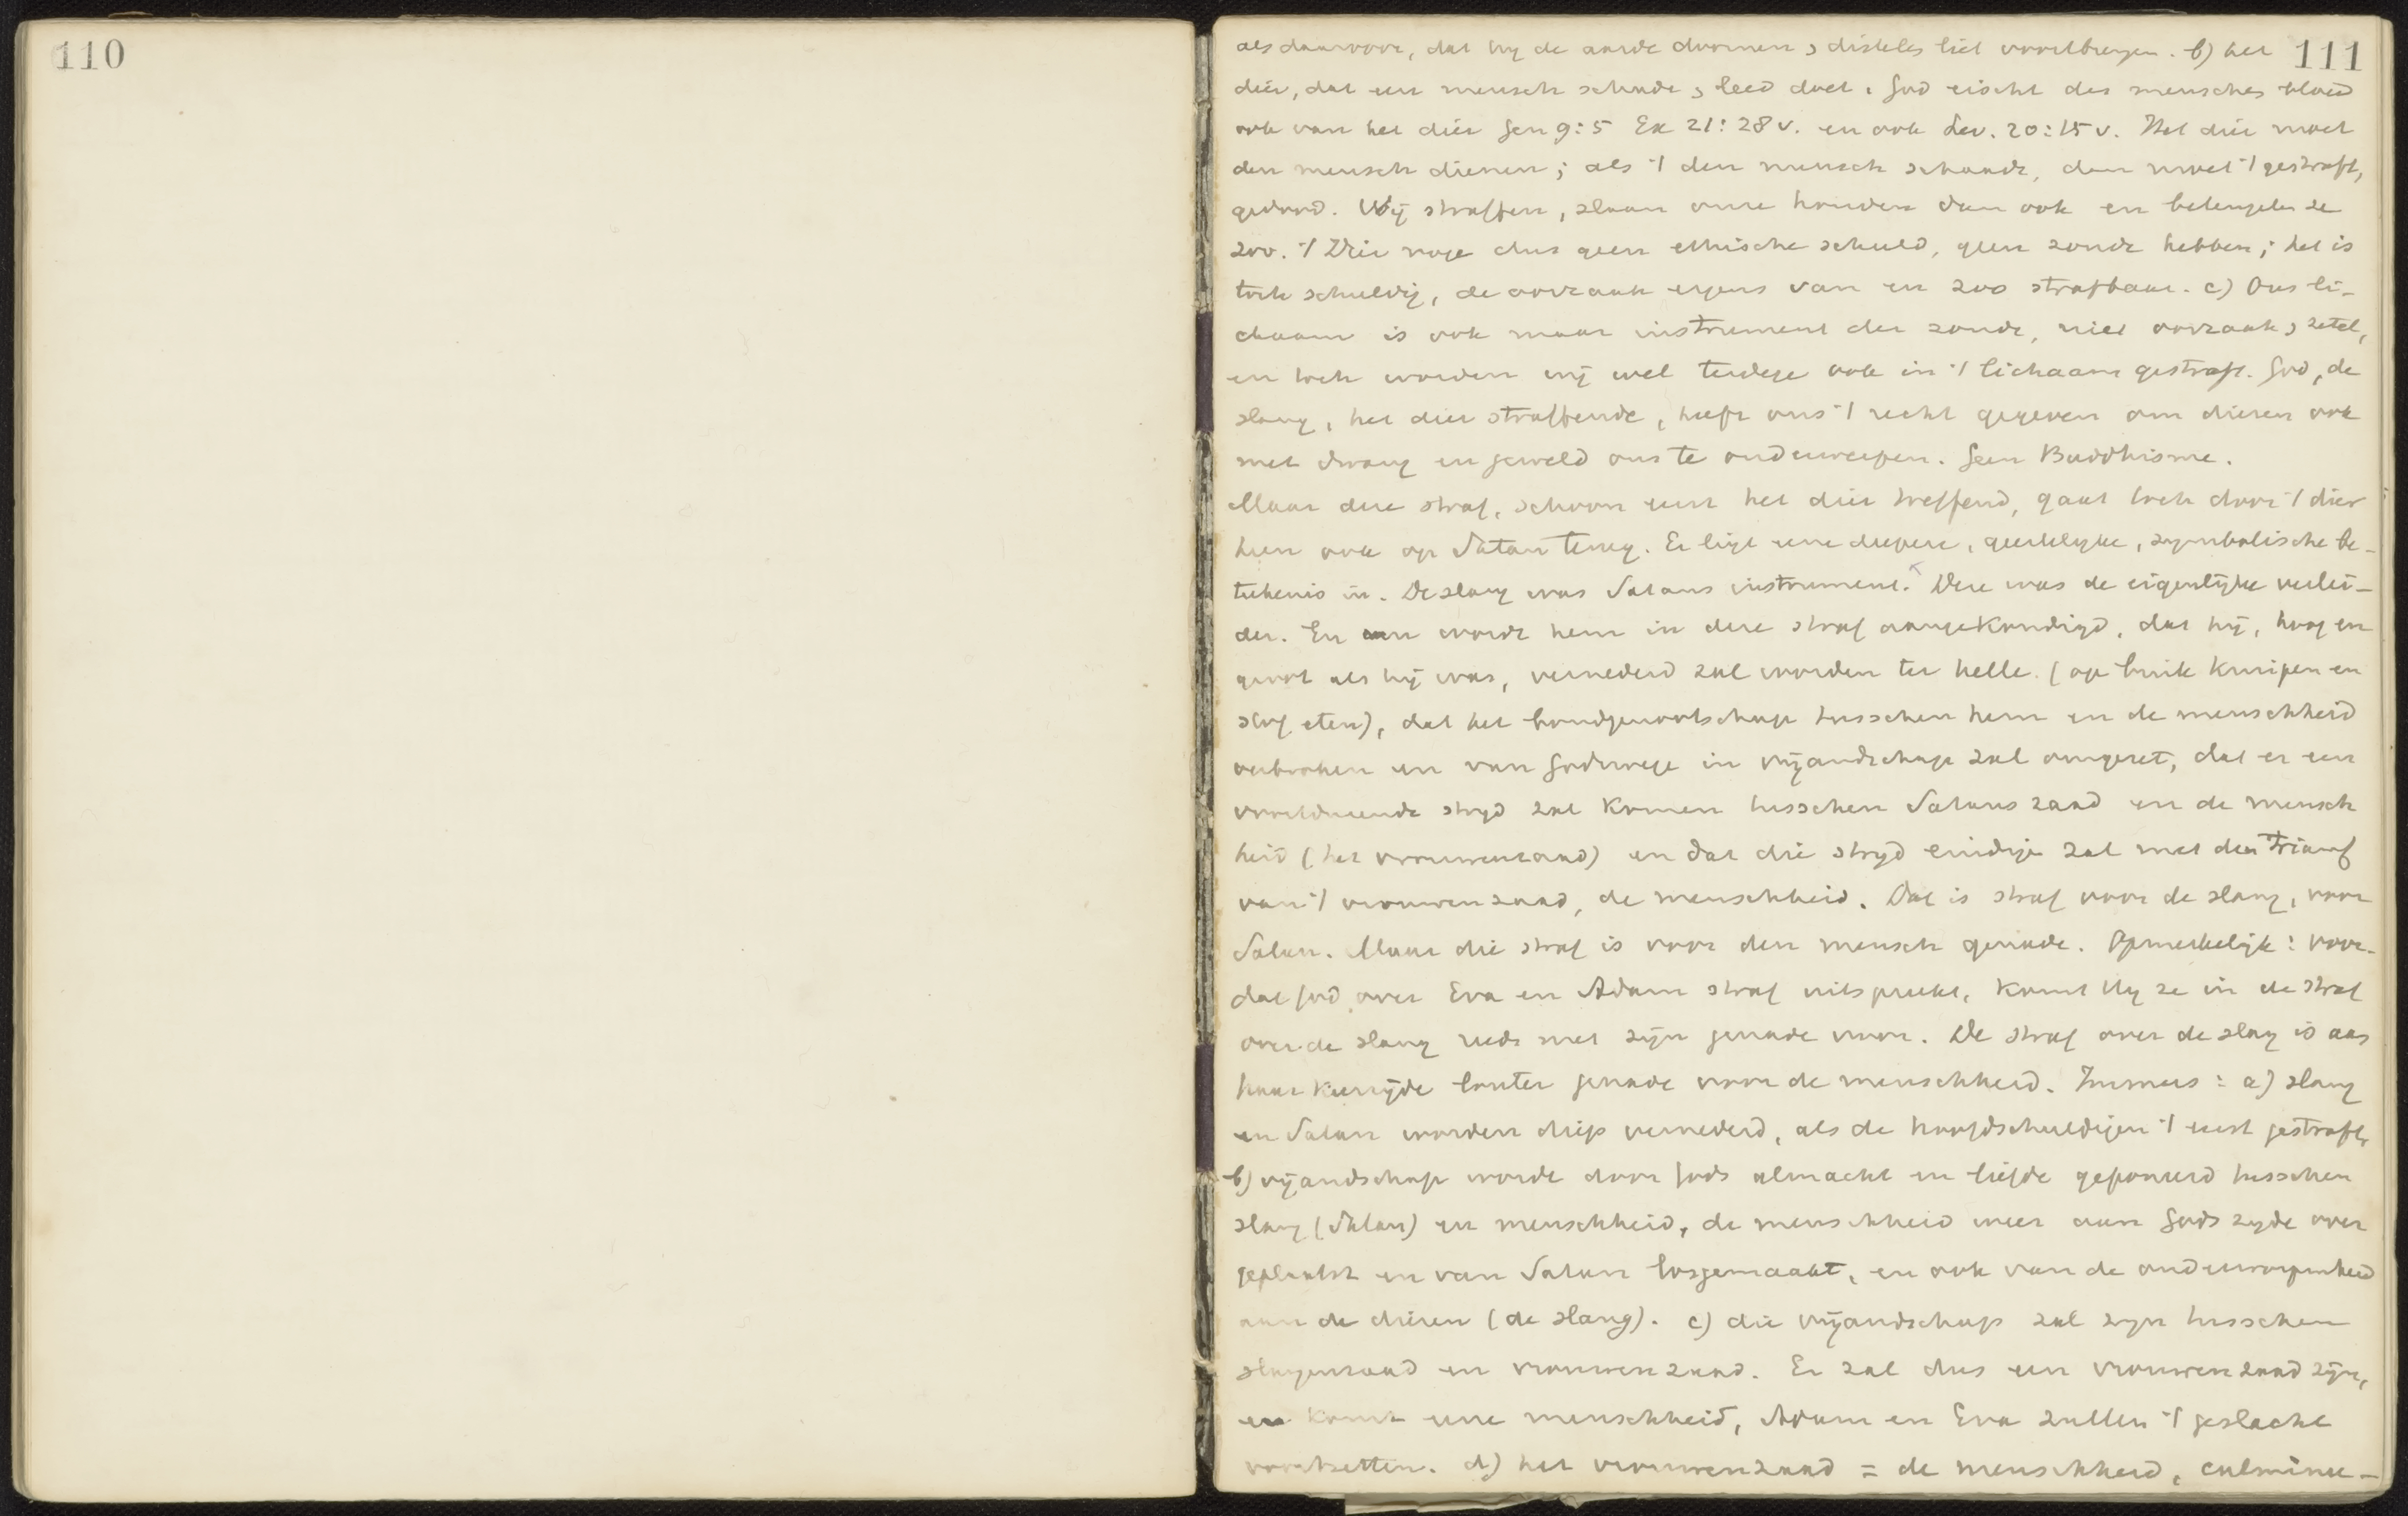 110
111
als daarvoor, dat hij de aarde doornen & distels liet voortbrengen. b) het
dier, dat een mensch schade & leed doet. God eischt des menschen bloed
ook van het dier Gen 9:5 Ex 21:28 v. en ook Lev. 20:15 v. Het dier moet
den mensch dienen; als 't den mensch schaadt, dan moet 't gestraft,
gedood. Wij straffen, slaan onze honden dan ook en beteugelen ze
zoo. 't Dier moge dus geen ethische schuld, geen zonde hebben; het is
toch schuldig, de oorzaak ergens van en zoo strafbaar. c) Ons li-
chaam is ook maar instrument der zonde, niet oorzaak & zetel,
en toch worden wij wel terdege ook in 't lichaam gestraft. God, de
slang, het dier straffende, heeft ons 't recht gegeven om dieren ook
met dwang en geweld ons te onderwerpen. Geen Buddhisme.
Maar deze straf, schoon eerst het dier treffend, gaat toch door 't dier
heen ook op Satan terug. Er ligt eene diepere, geestelijke, symbolische be-
teekenis in. De slang was Satans instrument. Deze was de eigenlijke verlei-
der. En nu wordt hem in deze straf aangekondigd, dat hij, hoog en
groot als hij was, vernederd zal worden ter helle. (op buik kruipen en
stof eten), dat het bondgenootschap tusschen hem en de menschheid
verbroken en van Godswege in vijandschap zal omgezet, dat er een
voortdurende strijd zal komen tusschen Satans zaad en de mensch
heid (het vrouwenzaad) en dat die strijd eindigen zal met den triumf
van 't vrouwenzaad, de menschheid. Dat is straf voor de slang, voor
Satan. Maar die straf is voor den mensch genade. Opmerkelijk: voor-
dat God over Eva en Adam straf uitspreekt, komt Hij ze in de straf
over de slang reeds met zijn genade voor. De straf over de slang is aan
haar keerzijde louter genade voor de menschheid. Immers: a) slang
en Satan worden diep vernederd, als de hoofdschuldigen 't eerst gestraft,
b) vijandschap wordt door Gods almacht en liefde geponeerd tusschen
slang (Satan) en menschheid, de menschheid weer aan Gods zijde over
geplaatst en van Satan losgemaakt, en ook van de onderworpenheid
aan de dieren (de slang). c) die vijandschap zal zijn tusschen
slangenzaad en vrouwenzaad. Er zal dus een vrouwenzaad zijn,
er komt eene menschheid, Adam en Eva zullen 't geslacht
voortzetten. d) het vrouwenzaad = de menschheid, culminee-